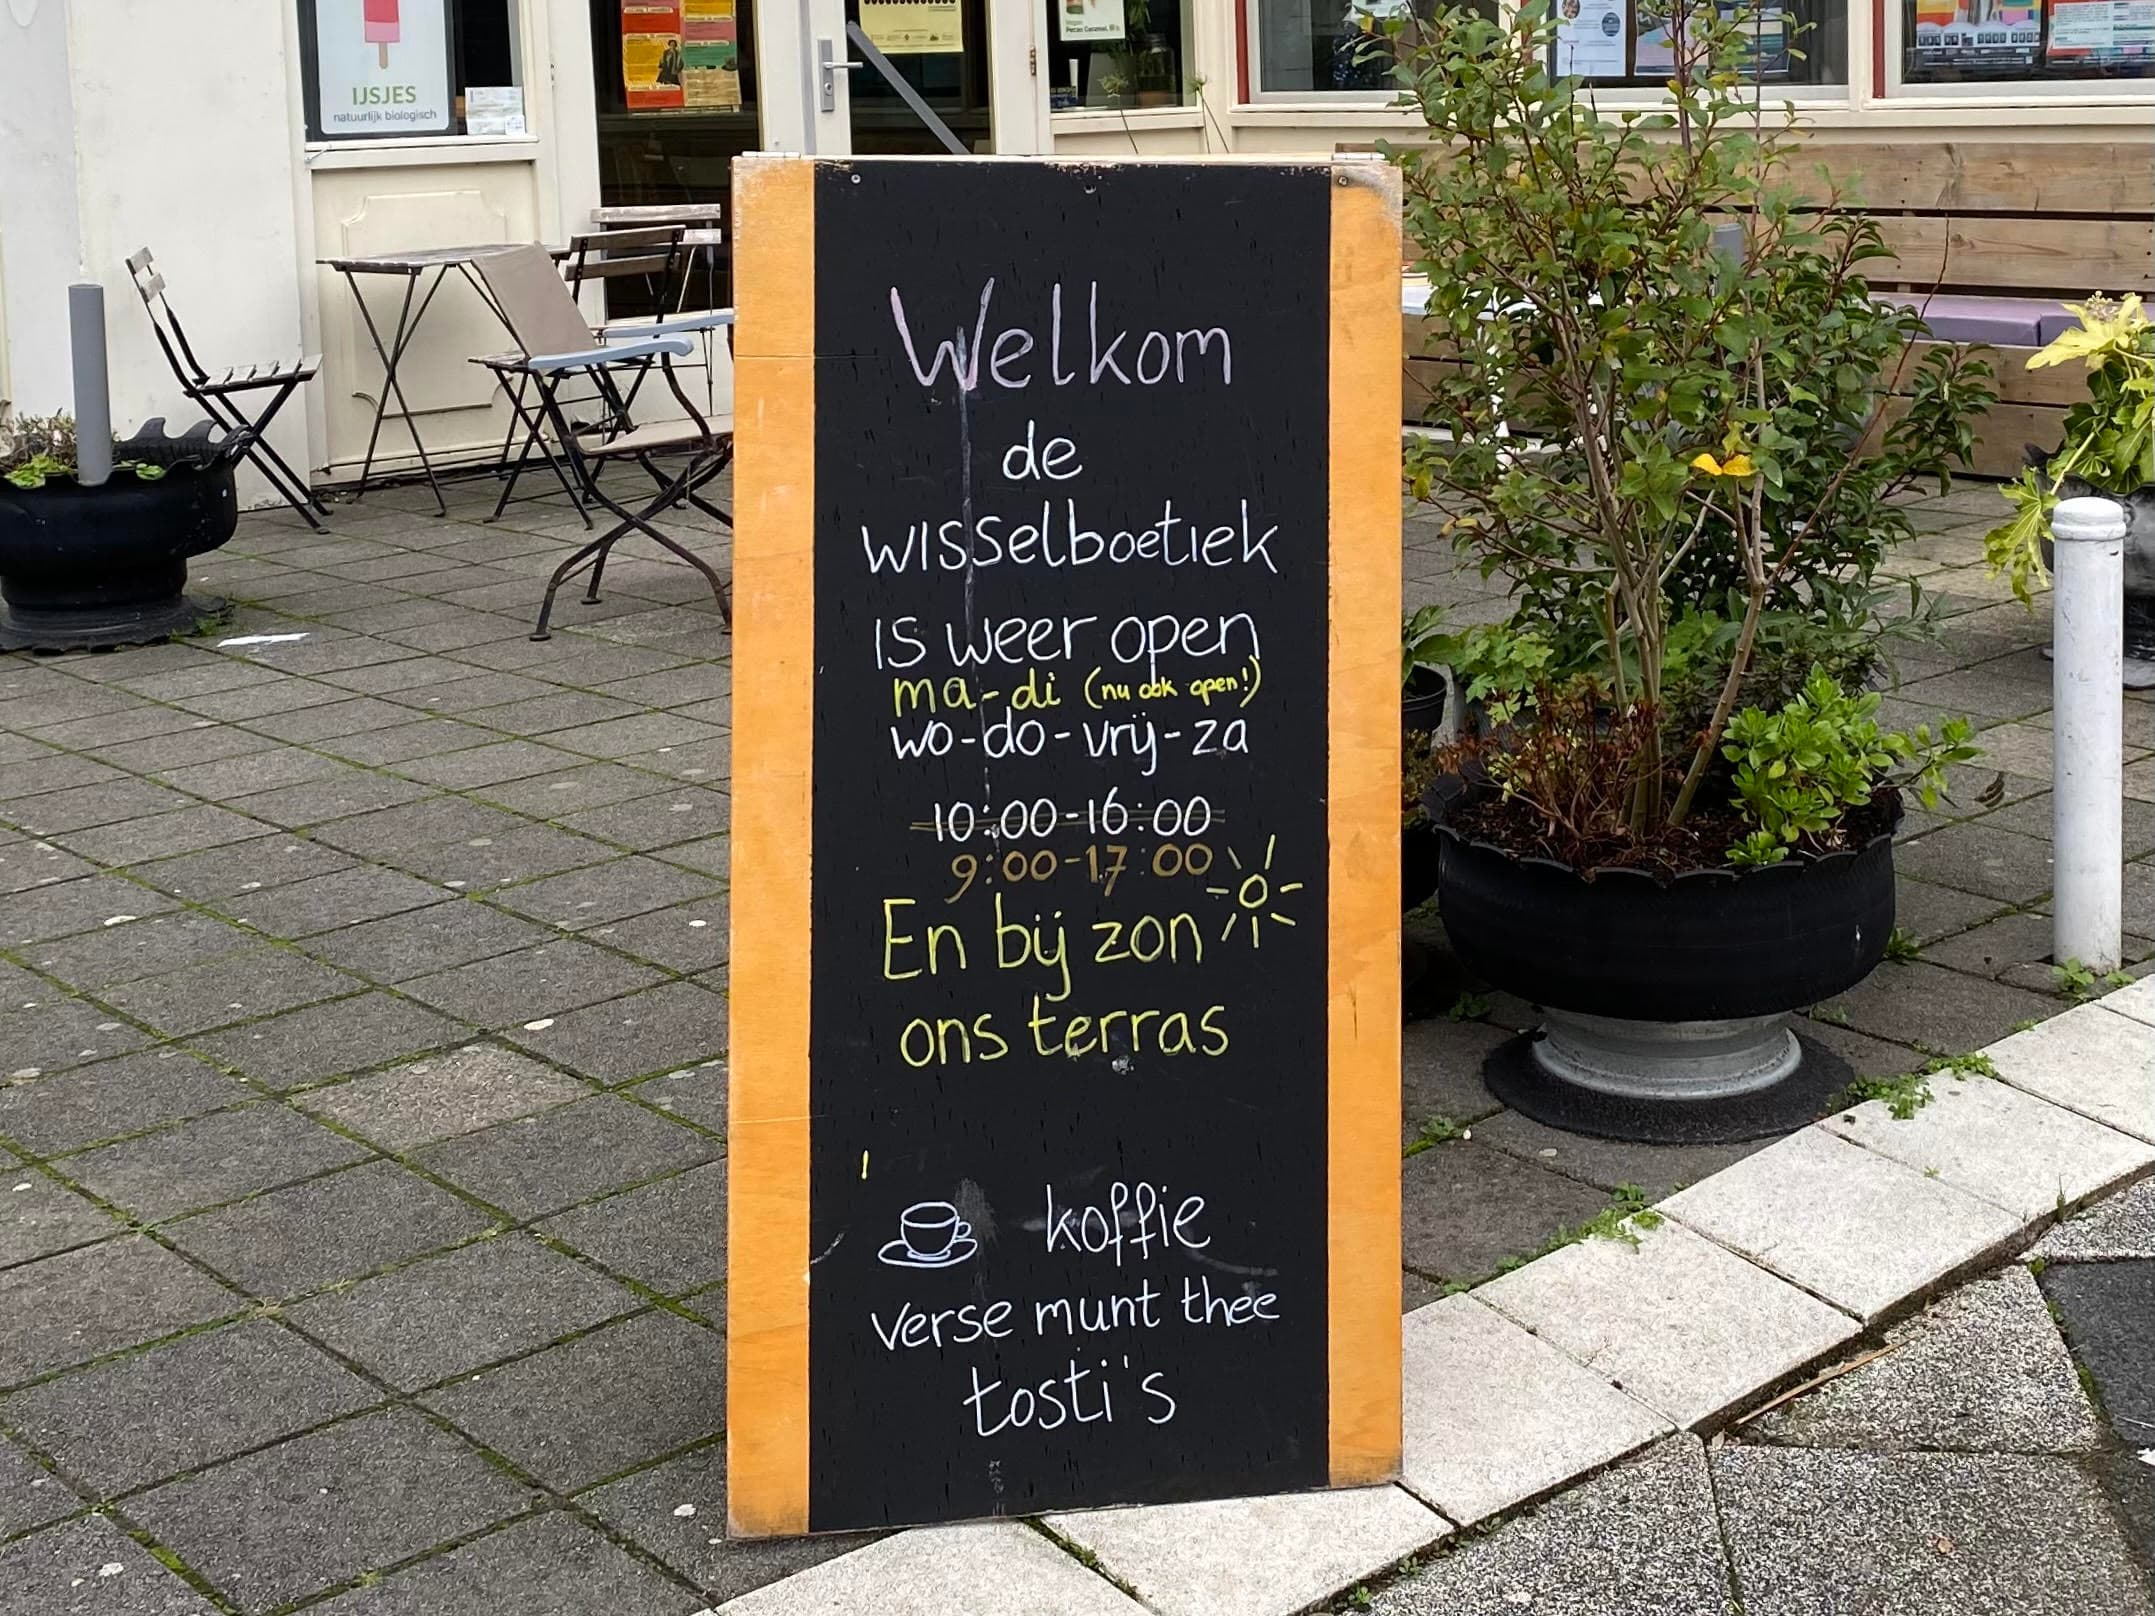 IJSJES
natuurlijk biologisch
Vegan
Pecan Caramel
Welkom
de
wisselboetiek
is weer open
ma-di (nu ook open!)
wo-do-vrij-za
10:00-16:00
9:00-17:00
En bij zon
ons terras
koffie
verse munt thee
tosti's